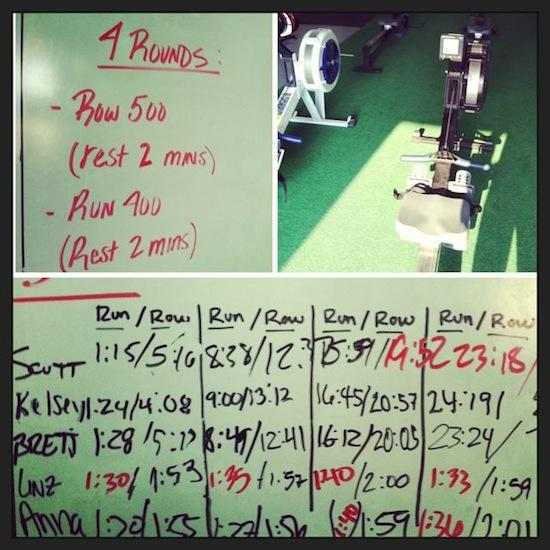 4 ROUNDS:
- Row 500
(rest 2 mins)
- RUN 400
(Rest 2 mins)
Run / Row Run / Row Run / Row Run / Row
SCOTT 1:15/ 8:38/ 19:52 23:18/
Kelsey 1:24/4:08 9:00/13:12 16:45/20:57 24:19/
BRETT 1:28 / 12:41 16:12/20:05 23:24/
LINZ 1:30/1:53 1:35/1:57 1:40/2:00 1:33/1:59
Anna 1:30/1:55 1:40/1:59 1:36/2:01